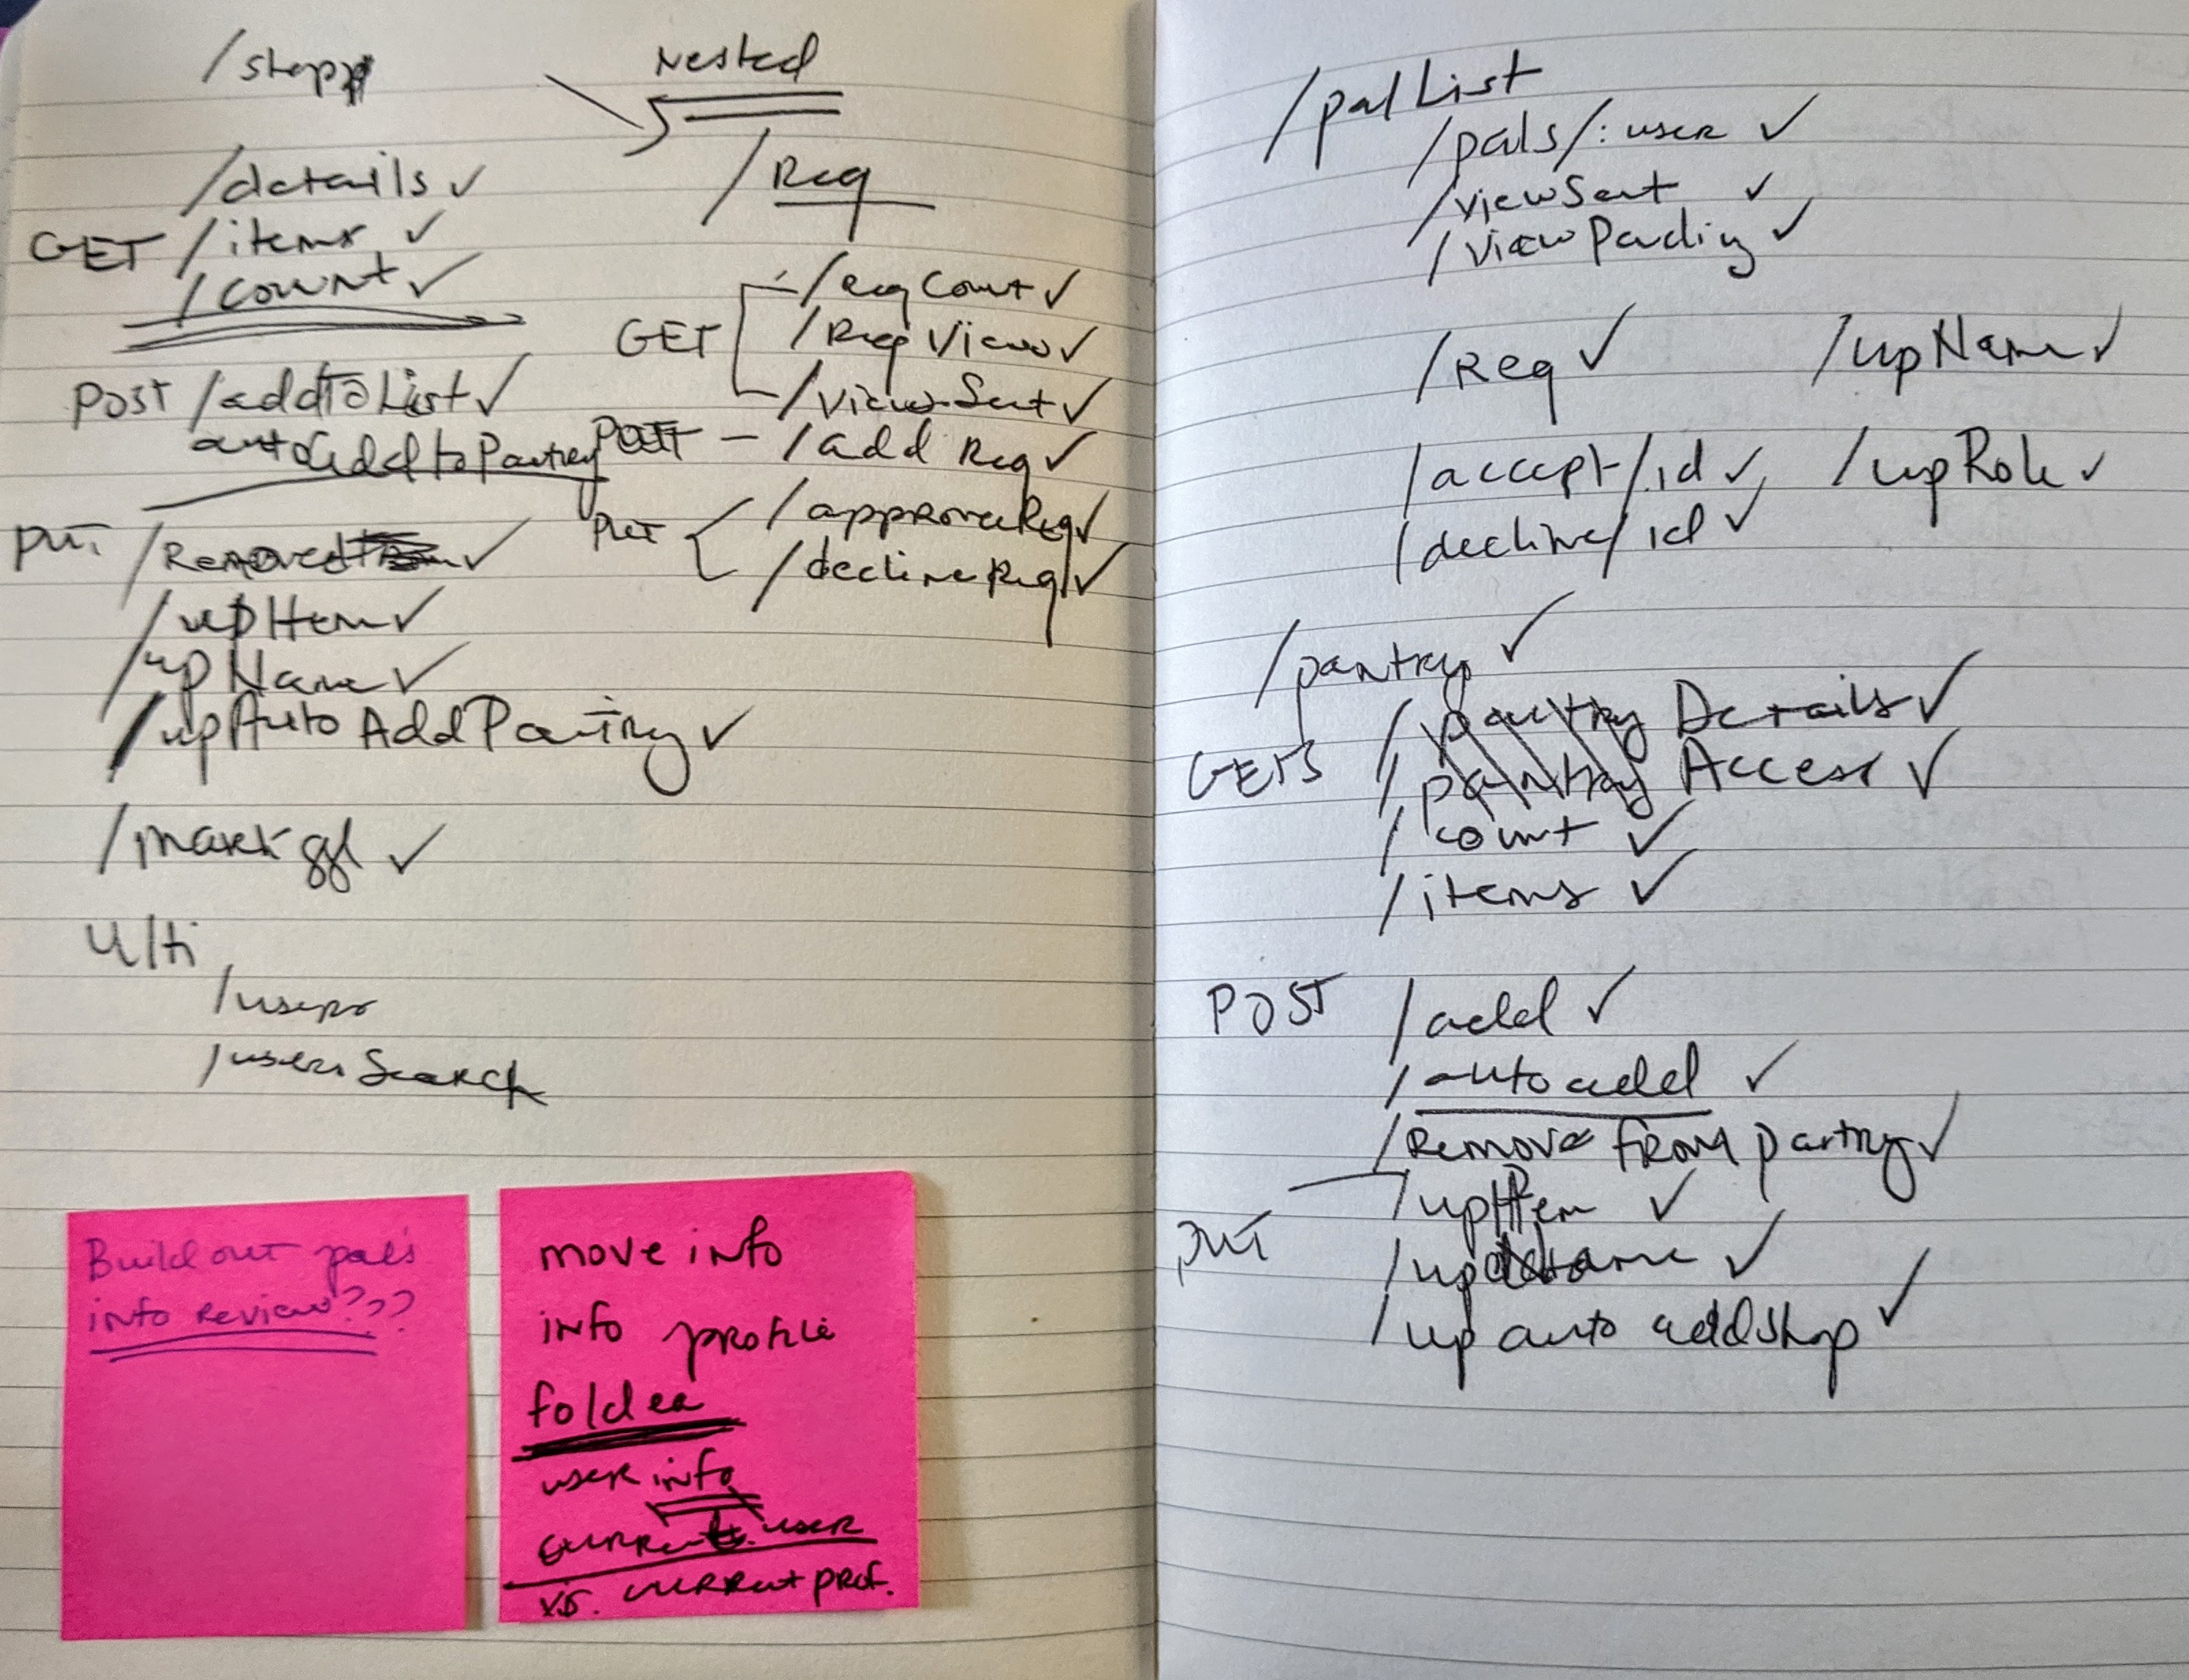 /shop
/details ✓
GET /items ✓
/count ✓
POST /addToList ✓
auto add to Pantry
PUT /Removed ✓
/upItem ✓
/upName ✓
/upAuto AddPantry ✓
/mark ✓
/users
/user Search
Nested
/Req
GET
/ReqCount ✓
/Req View ✓
/viewSent ✓
POST - /add Req ✓
PUT
/approveReq ✓
/declineReq ✓
Build out pal's
info Review???
move info
into profile
folder
user info
current user
vs. current prof.
/palList
/pals/:user ✓
/viewSent ✓
/viewPending ✓
/Req ✓ /upName ✓
/accept/:id ✓ /upRole ✓
/decline/id ✓
/pantry ✓
GETS
/pantry Details ✓
/pantry Access ✓
/count ✓
/items ✓
POST /add ✓
/autoadd ✓
/Remove from pantry ✓
PUT
/upItem ✓
/upName ✓
/up auto addshop ✓